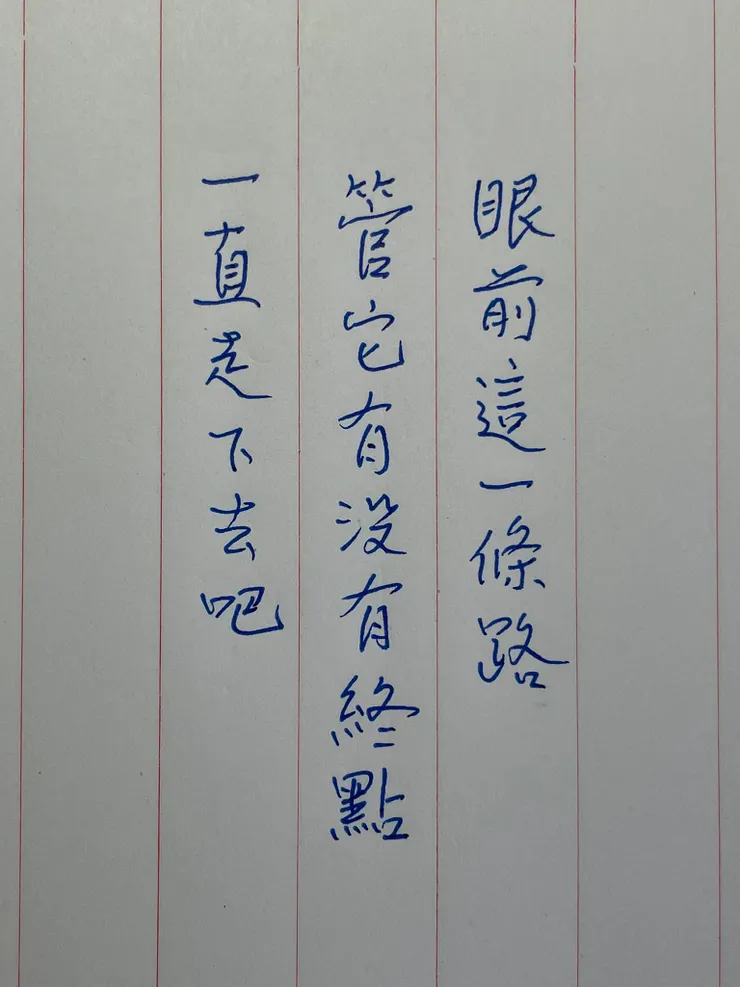 眼前這一條路
管它有没有終點
一直走下去吧